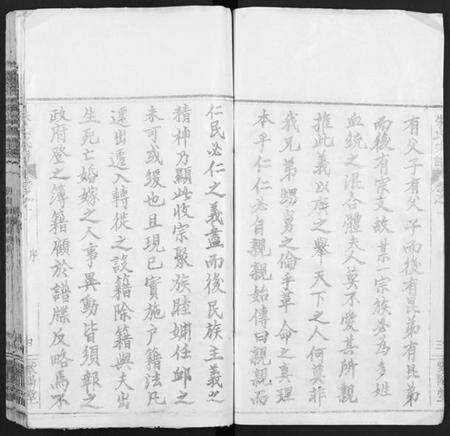 有父子有父子而後有昆弟有昆弟
而後有宗支故某一宗族必為多姓
血統之混合體夫人莫不愛其所親
推此義以廣之舉天下之人何莫非
我兄弟甥舅之倫乎革命之真理
本乎仁仁必自親親始傳曰親親而
仁民必仁之義盡而後民族主義之
精神乃顯此收宗聚族睦婣任卹之
未可或緩也且現已實施户籍法凡
遷出遷入轉徙之設籍除籍與夫出
生死亡婚嫁之人事異動皆須報之
政府登之簿籍顧於譜牒反略焉不
序